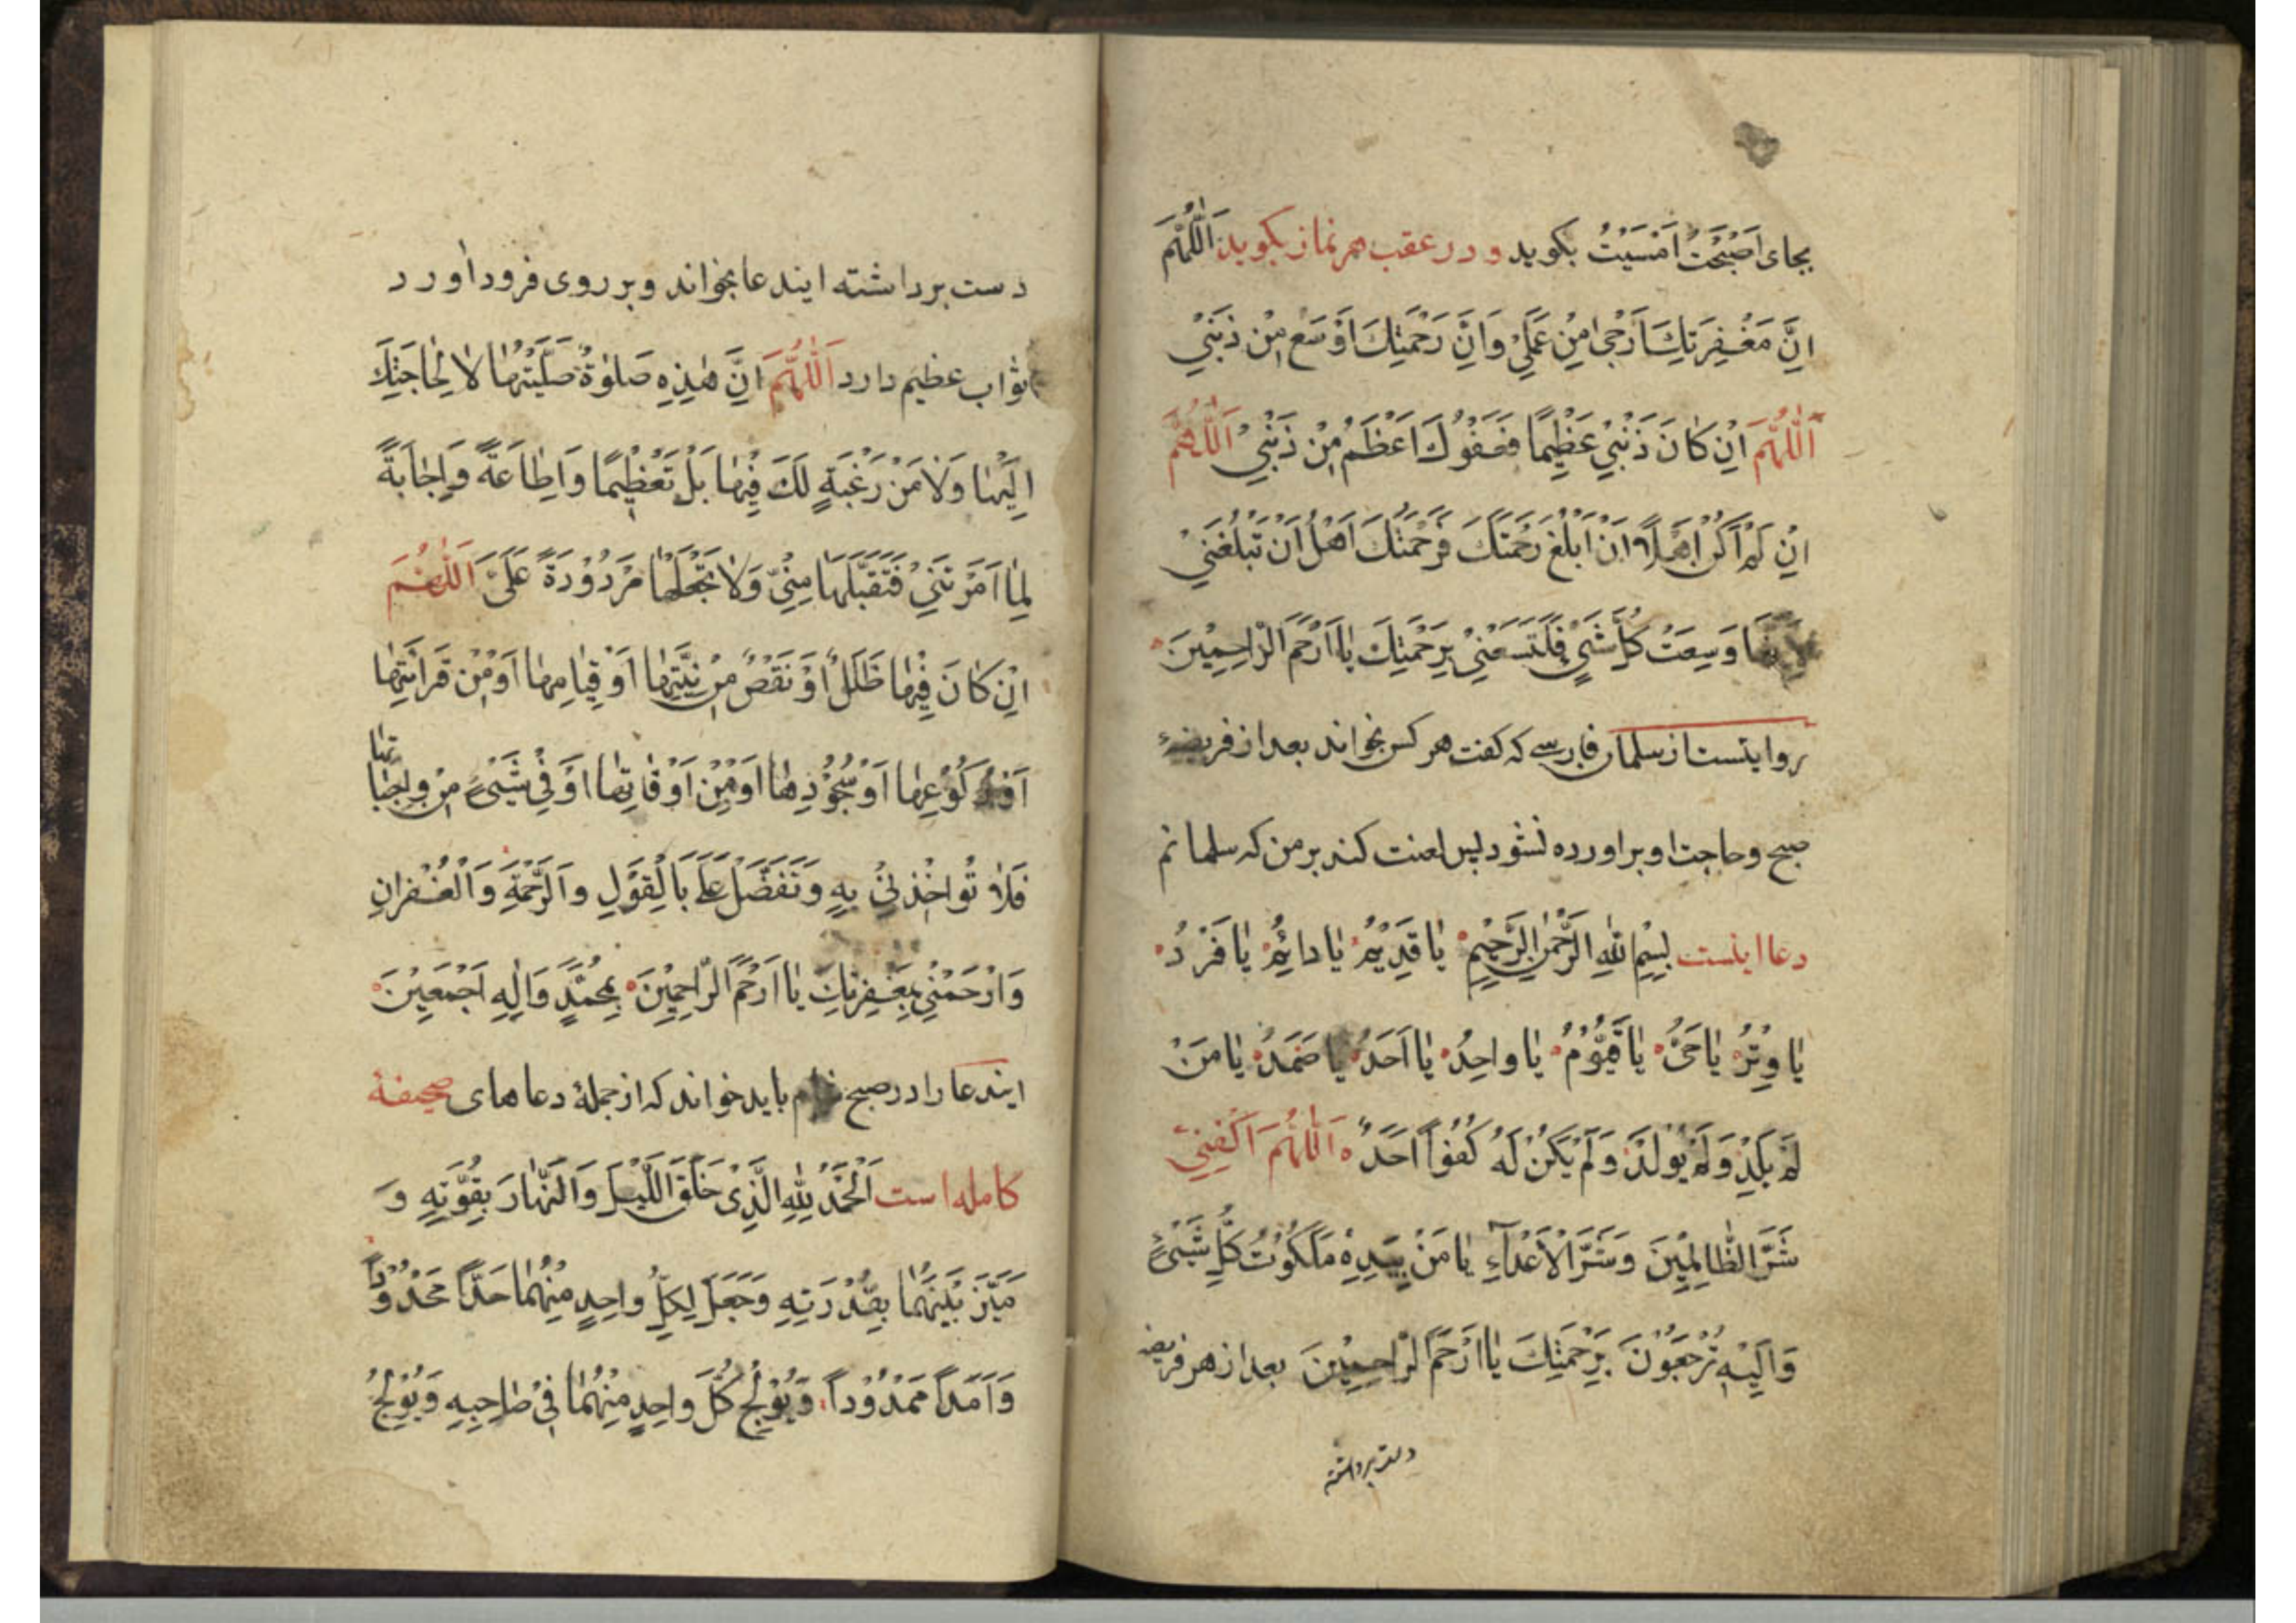 بجای اَصْبَحْتُ اَمْسَیْتُ بکوید و در عقب هر نماز بکوید اَللّٰهُمَّ
اِنَّ مَغْفِرَتِكَ اَرْجٰی مِنْ عَمَلِیْ وَاِنَّ رَحْمَتِكَ اَوْسَع مِنْ ذَنْبِیْ
اَللّٰهُمَّ اِنْ كٰانَ ذَنْبِیْ عَظِیْمًا فَعَفْوُكَ اَعْظَمُ مِنْ ذَنْبِیْ اَللّٰهُمَّ
اِنْ لَمْ اَكُنْ اَهْلاً اَنْ اَبْلُغَ رَحْمَتَكَ فَرَحْمَتُكَ اَهْلُ اَنْ تَبْلُغَنِیْ
لِاَنَّهَا وَسِعَتْ كُلَّ شَیْءٍ فَلْتَسَعْنِیْ بِرَحْمَتِكَ یٰا اَرْحَمَ الرّٰاحِمِیْنَ
روایتست از سلمان فارسی که کفت هر کس بخواند بعد از فریضهٔ
صبح و حاجت او براورده نشود پس لعنت کند بر من که سلمانم
دعا اینست بِسْمِ اللهِ الرَّحْمٰنِ الرَّحِیْمِ یٰا قَدِیْمُ یٰا دائِمُ یٰا فَرْدُ
یٰا وِتْرُ یٰا حَیُّ یٰا قَیُّوْمُ یٰا واحِدُ یٰا اَحَدُ یٰا صَمَدُ یٰا مَنْ
لَمْ یَلِدْ وَلَمْ یُوْلَدْ وَلَمْ یَكُنْ لَهُ كُفُواً اَحَدٌ اَللّٰهُمَّ اَكْفِنِیْ
شَرَّ الظّٰالِمِیْنَ وَشَرَّ الْاَعْدٰآءِ یٰا مَنْ بِیَدِهِ مَلَكُوْتُ كُلِّ شَیْءٍ
وَاِلَیْهِ تُرْجَعُوْنَ بِرَحْمَتِكَ یٰا اَرْحَمَ الرّٰاحِمِیْنَ بعد از هر فریضه
دست برداشته
دست برداشته ایندعا بخواند و بر روی فرود اورد
ثواب عظیم دارد اَللّٰهُمَّ اِنَّ هٰذِهِ صَلوٰةٌ صَلَّیْتُهٰا لاٰ لِحٰاجَتِكَ
اِلَیْهٰا وَلاٰ مَنْ رَغْبَةٍ لَكَ فِیْهٰا بَلْ تَعْظِیْمًا وَاِطٰاعَةً وَاِجٰابَةً
لِمٰا اَمَرْتَنِیْ فَتَقَبَّلَهَا مِنِّیْ وَلاٰ تَجْعَلْهٰا مَرْدُوْدَةً عَلَیَّ اَللّٰهُمَّ
اِنْ كٰانَ فِیْهٰا خَلَلٌ اَوْ نَقْصٌ مِنْ نِیَّتِهٰا اَوْ قِیٰامِهٰا اَوْ مِنْ قَرائَتِهٰا
اَوْ رُكُوْعِهٰا اَوْ سُجُوْدِهٰا اَوْ مِنْ اَوْقٰاتِهٰا اَوْ فِیْ شَیْءٍ مِنْ واجِبٰاتِهٰا
فَلاٰ تُواخِذْنِیْ بِهِ وَتَفَضَّلْ عَلَیَّ بَالْقَوْلِ وَالرَّحْمَةِ وَالْغُفْرانِ
وَارْحَمْنِیْ بِمَغْفِرَتِكَ یٰا اَرْحَمَ الرّٰاحِمِیْنَ بِمُحَمَّدٍ وَاٰلِهِ اَجْمَعِیْنَ
ایندعا را در صبح باید خواند که از جملهٔ دعاهای صحیفهٔ
کامله است اَلْحَمْدُ لِلّٰهِ الَّذِیْ خَلَقَ اللَّیْلَ وَالنَّهٰارَ بِقُوَّتِهِ وَ
مَیَّزَ بَیْنَهُمٰا بِقُدْرَتِهِ وَجَعَلَ لِكُلِّ واحِدٍ مِنْهُمٰا حَدّاً مَحْدُوْداً
وَاَمَداً مَمْدُوْداً وَیُوْلِجُ كُلَّ واحِدٍ مِنْهُمٰا فِیْ صٰاحِبِهِ وَیُوْلِجُ